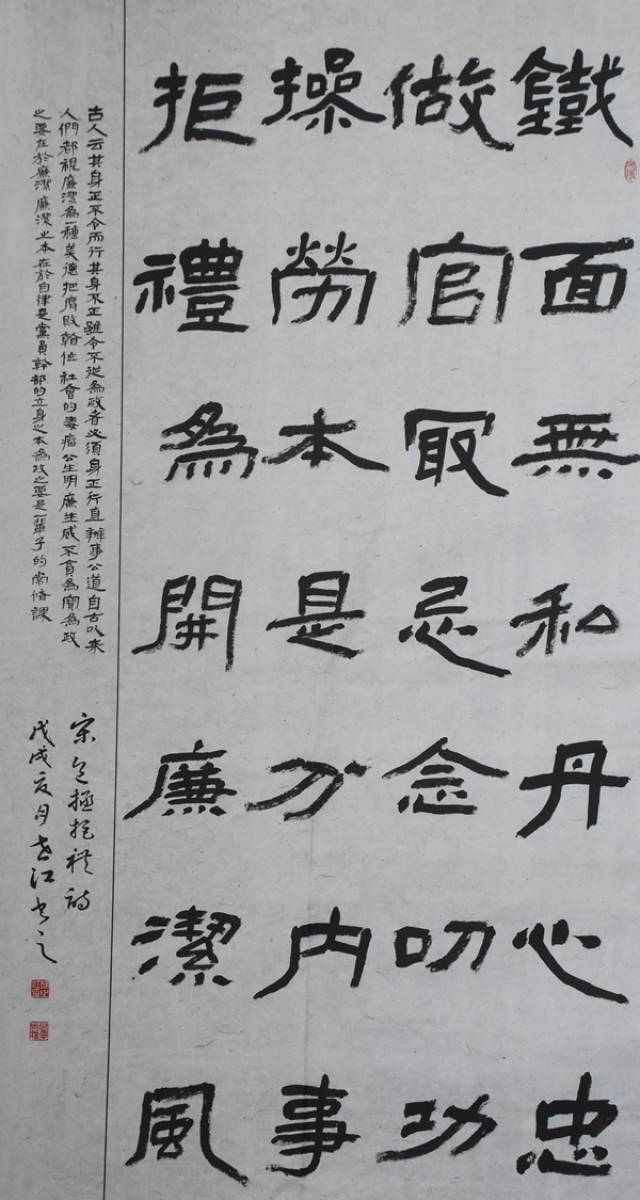 鐵面無私丹心忠
做官最忌念叨功
操勞本是分內事
拒禮為開廉潔風
古人云其身正不令而行其身不正雖令不從為政者必須身正行直辦事公道自古以來
人們都視廉潔為一種美德把腐敗喻作社會的毒瘤公生明廉生威不貪為寶為政
之要在於廉潔廉潔之本在於自律是黨員幹部的立身之本為政之要是一輩子的常修課
宋包拯拒禮詩
戊戌夏月江書之